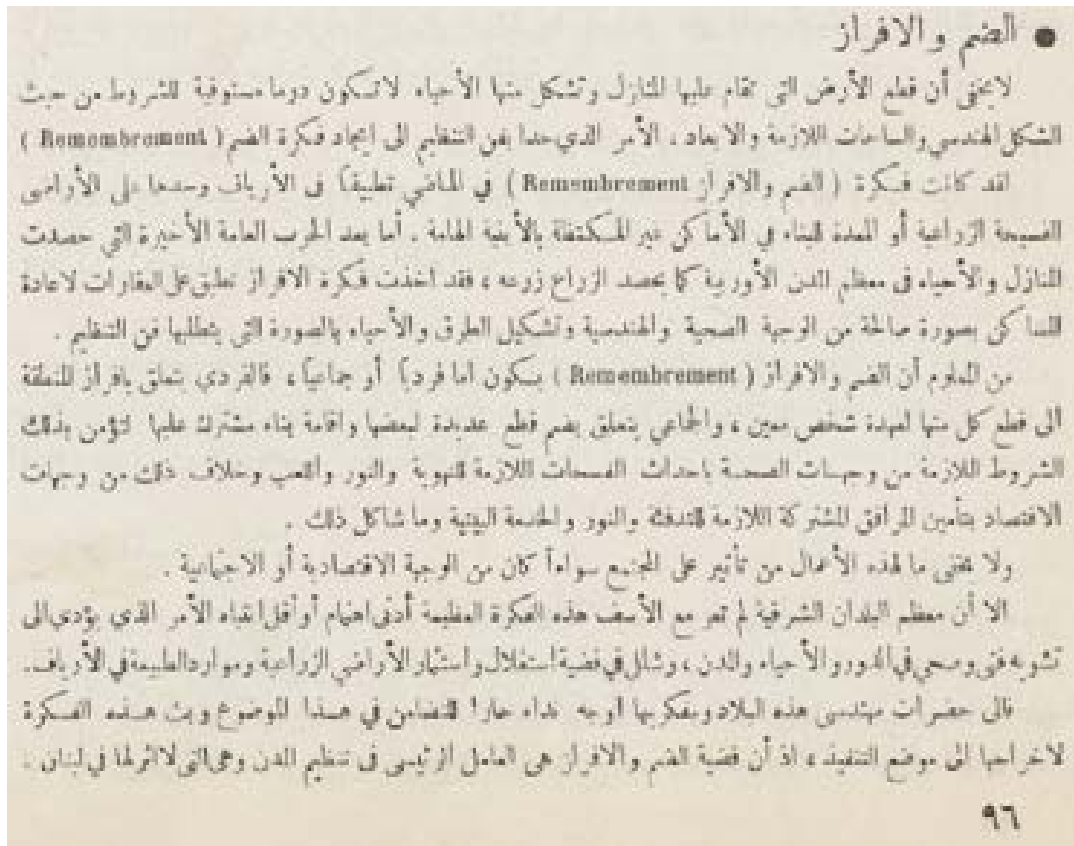 ● الضم والافراز
لا يخفى أن قطع الأرض التي تقام عليها المنازل وتشكل منها الأحياء لا تكون دوما مستوفية للشروط من حيث
الشكل الهندسي والساحات اللازمة والابعاد ، الأمر الذي حدا بفن التنظيم الى ايجاد فكرة الضم ( Remembrement )
لقد كانت فكرة ( الضم والافراز Remembrement ) في الماضي تطبيقاً في الأرياف وحدها على الأراضي
الفسيحة الزراعية أو المعدة للبناء في الأماكن غير المكتظة بالأبنية الهامة . أما بعد الحرب العامة الأخيرة التي حصدت
المنازل والأحياء في معظم المدن الأوربية كما يحصد الزراع زرعه ، فقد اخذت فكرة الافراز تطبق على العقارات لاعادة
المساكن بصورة صالحة من الوجهة الصحية والهندسية وتشكيل الطرق والأحياء بالصورة التي يتطلبها فن التنظيم .
من المعلوم أن الضم والافراز ( Remembrement ) يكون اما فردياً أو جماعياً ، فالفردي يتعلق بافراز المنطقة
الى قطع كل منها لعهدة شخص معين ، والجماعي يتعلق بضم قطع عديدة لبعضها واقامة بناء مشترك عليها لتؤمن بذلك
الشروط اللازمة من وجهات الصحة باحداث الفسحات اللازمة للتهوية والنور واللعب وخلاف ذلك من وجهات
الاقتصاد بتأمين المرافق المشتركة اللازمة للتدفئة والنور والخدمة البيتية وما شاكل ذلك .
ولا يخفى ما لهذه الأعمال من تأثير على المجتمع سواءاً كان من الوجهة الاقتصادية أو الاجتماعية .
الا أن معظم البلدان الشرقية لم تعر مع الأسف هذه الفكرة العظيمة أدنى اهتمام أو أقل انتباه الأمر الذي يؤدي الى
تشويه فني وصحي في الدور والأحياء والمدن ، وشلل في قضية استغلال واستثمار الأراضي الزراعية وموارد الطبيعة في الأرياف.
فالى حضرات مهندسي هذه البلاد ومفكريها اوجه نداء حاراً للتضامن في هذا الموضوع وبث هذه الفكرة
لاخراجها الى موضع التنفيذ ، اذ أن قضية الضم والافراز هي العامل الرئيسي في تنظيم المدن وهي التي لا اثر لها في لبنان .
٩٦